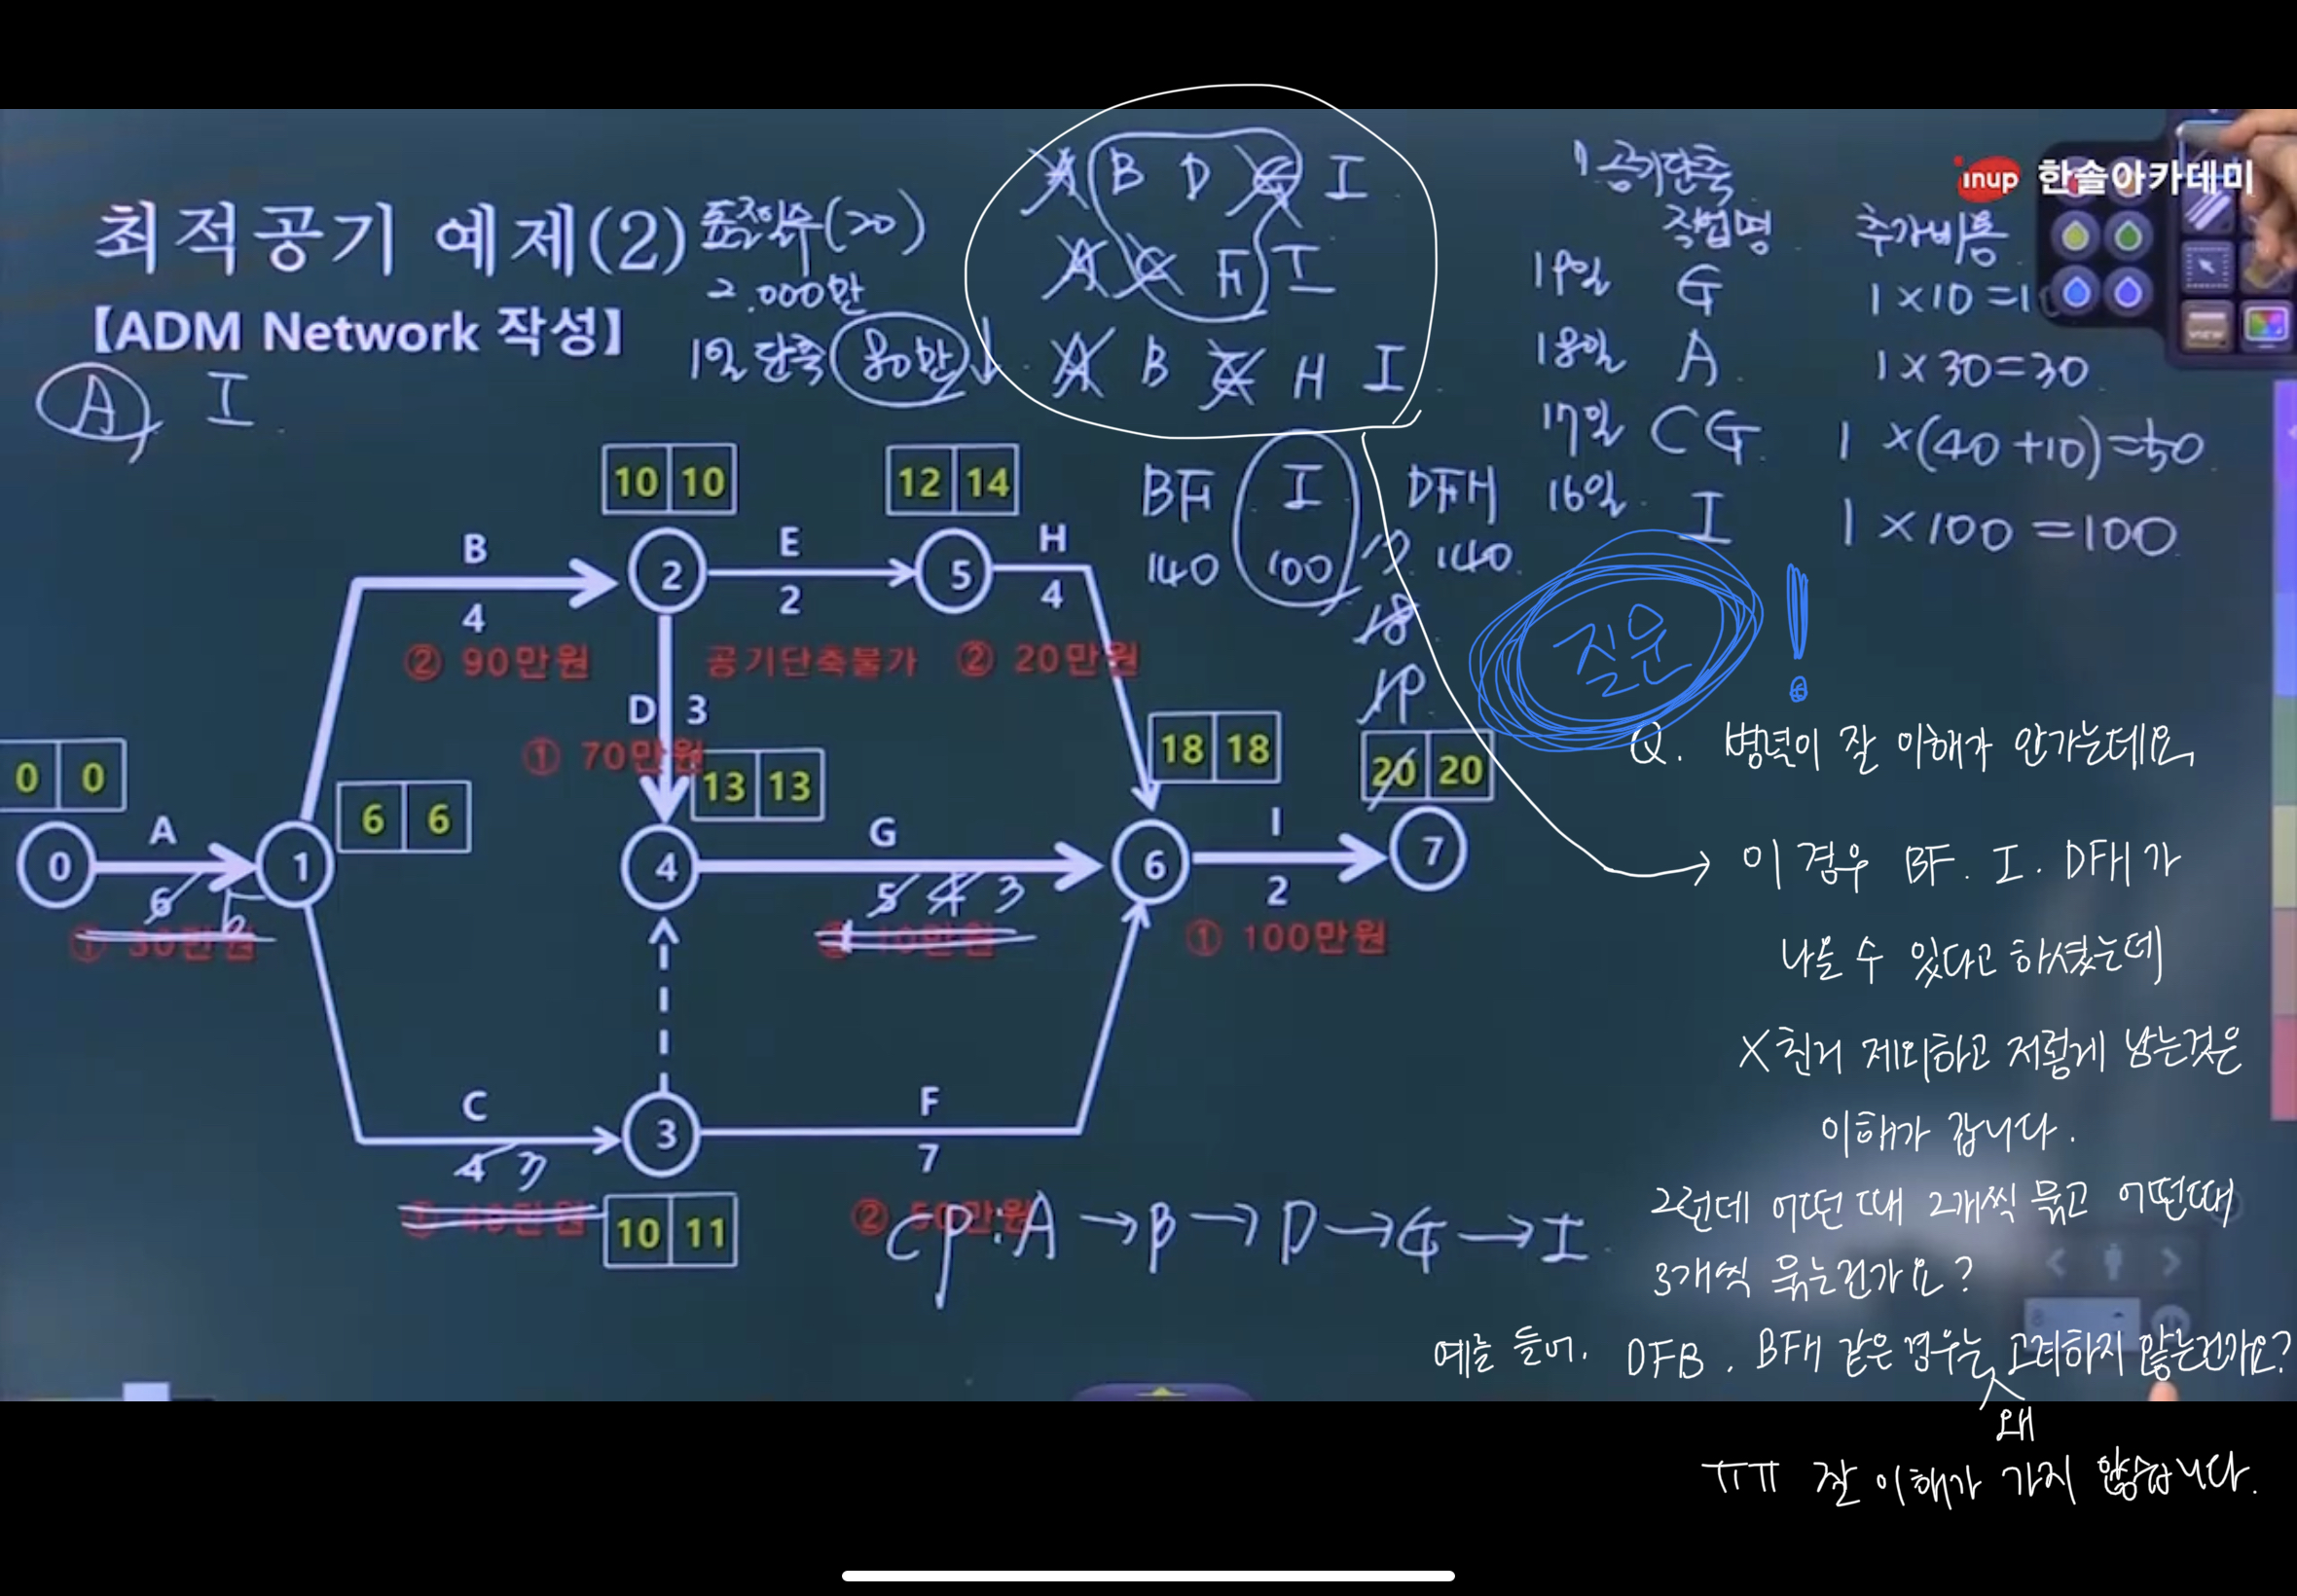 최적공기 예제(2)
【ADM Network 작성】
표준일수(20)
2.000만
1일 단축 80만↓
A I
A B D G I
A C F I
A B E H I
BF I DFH
140 100 140
17
18
19
1) 공기단축
작업명 추가비용
19일 G 1×10=1
18일 A 1×30=30
17일 CG 1×(40+10)=50
16일 I 1×100=100
inup 한솔아카데미
VIEW
10 10
12 14
B
4
② 90만원
2
E
2
공기단축불가
5
H
4
② 20만원
D 3
① 70만원
13 13
18 18
20 20
0 0
6 6
0
A
6 5
① 30만원
1
4
G
5 4 3
10만원
6
I
2
① 100만원
7
C
4 3
① 40만원
3
10 11
F
7
② 50만원
CP: A → B → D → G → I
질문!
Q. 병렬이 잘 이해가 안가는데요,
→ 이 경우 BF. I. DFH가
나올 수 있다고 하셨는데
X친거 제외하고 저렇게 남는것은
이해가 갑니다.
그런데 어떤 때 2개씩 묶고 어떤때
3개씩 묶는건가요?
예를 들어. DFB. BFH 같은 경우는 왜 고려하지 않는건가요?
ㅠㅠ 잘 이해가 가지 않습니다.